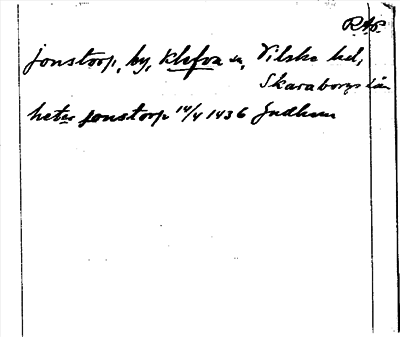 R.A.P.
Jonstorp, by, Klefva sn, Vilske hd,
Skaraborgs län
heter Jonstorp 14/4 1436